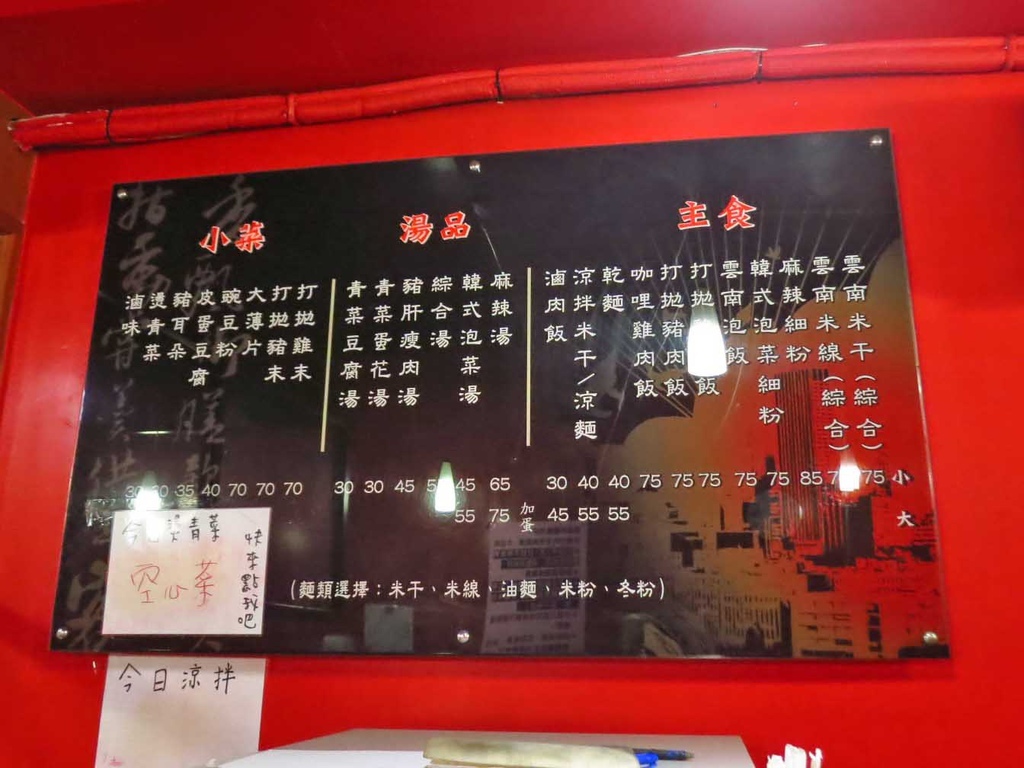 小菜
滷味
燙青菜
豬耳朵
皮蛋豆腐
豌豆粉
大薄片
打拋豬末
打拋雞末
30
35 40 70 70 70
湯品
青菜豆腐湯
青菜蛋花湯
豬肝瘦肉湯
綜合湯
韓式泡菜湯
麻辣湯
30 30 45 45 65
55 75
加蛋
主食
滷肉飯
涼拌米干/涼麵
乾麵
咖哩雞肉飯
打拋豬肉飯
打拋飯
雲南泡飯
韓式泡菜細粉
麻辣細粉
雲南米線(綜合)
雲南米干(綜合)
30 40 40 75 75 75 75 75 85 75 小
45 55 55 大
(麵類選擇:米干、米線、油麵、米粉、冬粉)
今燙青菜
空心菜
快來點我吧
今日涼拌